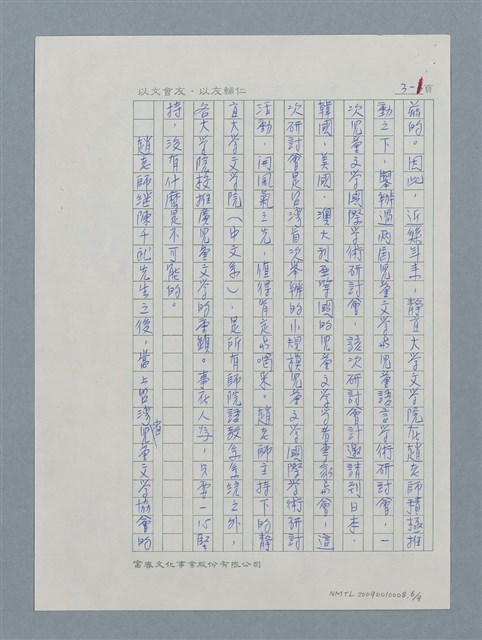 以文會友・以友輔仁
3-1頁
茲的。因此,近幾年來,靜宜大学文学院在趙老師積極推
動之下,舉辦過兩屆兒童文学与兒童語言学術研討會,一
次兒童文学國際学術研討會,該次研討會計邀請到日本、
韓國、美國、澳大利亞等國的兒童文学学者專家与會,這
次研討會是台湾首次舉辦的小規模兒童文学國際学術研討
活動,開風氣之先,值得肯定与喝采。趙老師主持下的靜
宜大学文学院(中文系),是所有師院語教系系統之外,
各大学院校推廣兒童文学的重鎮。事在人為,只要一心堅
持,沒有什麼是不可能的。
趙老師继陳千武先生之後,當上台湾省兒童文学協會的
富春文化事業股份有限公司
NMTL 20090010008.6/9